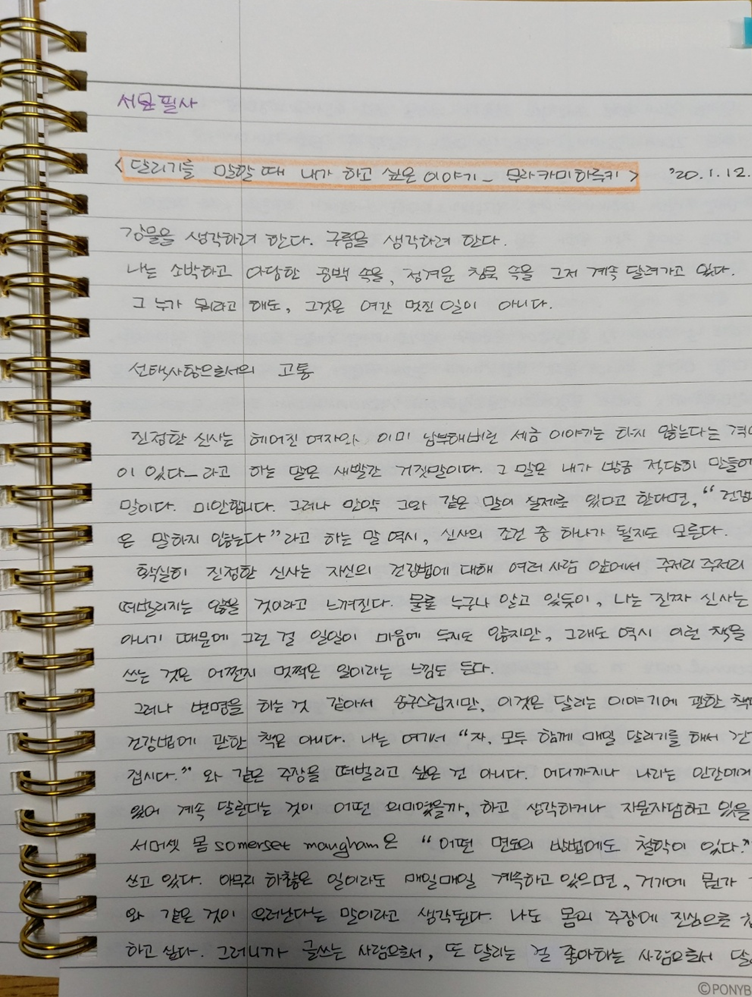 서문필사
<달리기를 말할 때 내가 하고 싶은 이야기 - 무라카미하루키> '20.1.12.
강물을 생각하려 한다. 구름을 생각하려 한다.
나는 소박하고 아담한 공백 속을, 정겨운 침묵 속을 그저 계속 달려가고 있다.
그 누가 뭐라고 해도, 그것은 여간 멋진 일이 아니다.
선택사항으로서의 고통
진정한 신사는 헤어진 여자와, 이미 납부해버린 세금 이야기는 하지 않는다는
이 있다 - 라고 하는 말은 새빨간 거짓말이다. 그 말은 내가 방금 적당히 만들어
말이다. 미안합니다. 그러나 만약 그와 같은 말이 실제로 있다고 한다면, "건강
은 말하지 않는다"라고 하는 말 역시, 신사의 조건 중 하나가 될지도 모른다.
확실히 진정한 신사는 자신의 건강법에 대해 여러 사람 앞에서 주저리 주저리
떠벌리지는 않을 것이라고 느껴진다. 물론 누구나 알고 있듯이, 나는 진짜 신사는
아니기 때문에 그런 걸 일일이 마음에 두지도 않지만, 그래도 역시 이런 책을
쓰는 것은 어쩐지 멋쩍은 일이라는 느낌도 든다.
그러나 변명을 하는 것 같아서 송구스럽지만, 이것은 달리는 이야기에 관한 책
건강법에 관한 책은 아니다. 나는 여기서 "자, 모두 함께 매일 달리기를 해서 건
집시다." 와 같은 주장을 떠벌리고 싶은 건 아니다. 어디까지나 나라는 인간에게
있어 계속 달린다는 것이 어떤 의미였을까, 하고 생각하거나 자문자답하고 있을
서머셋 몸 somerset maugham은 "어떤 면도의 방법에도 철학이 있다."
쓰고 있다. 아무리 하찮은 일이라도 매일매일 계속하고 있으면, 거기에 뭔가
와 같은 것이 우러난다는 말이라고 생각된다. 나도 몸의 주장에 진심으로
하고 싶다. 그러니까 글쓰는 사람으로서, 또 달리는 걸 좋아하는 사람으로서
©PONYB